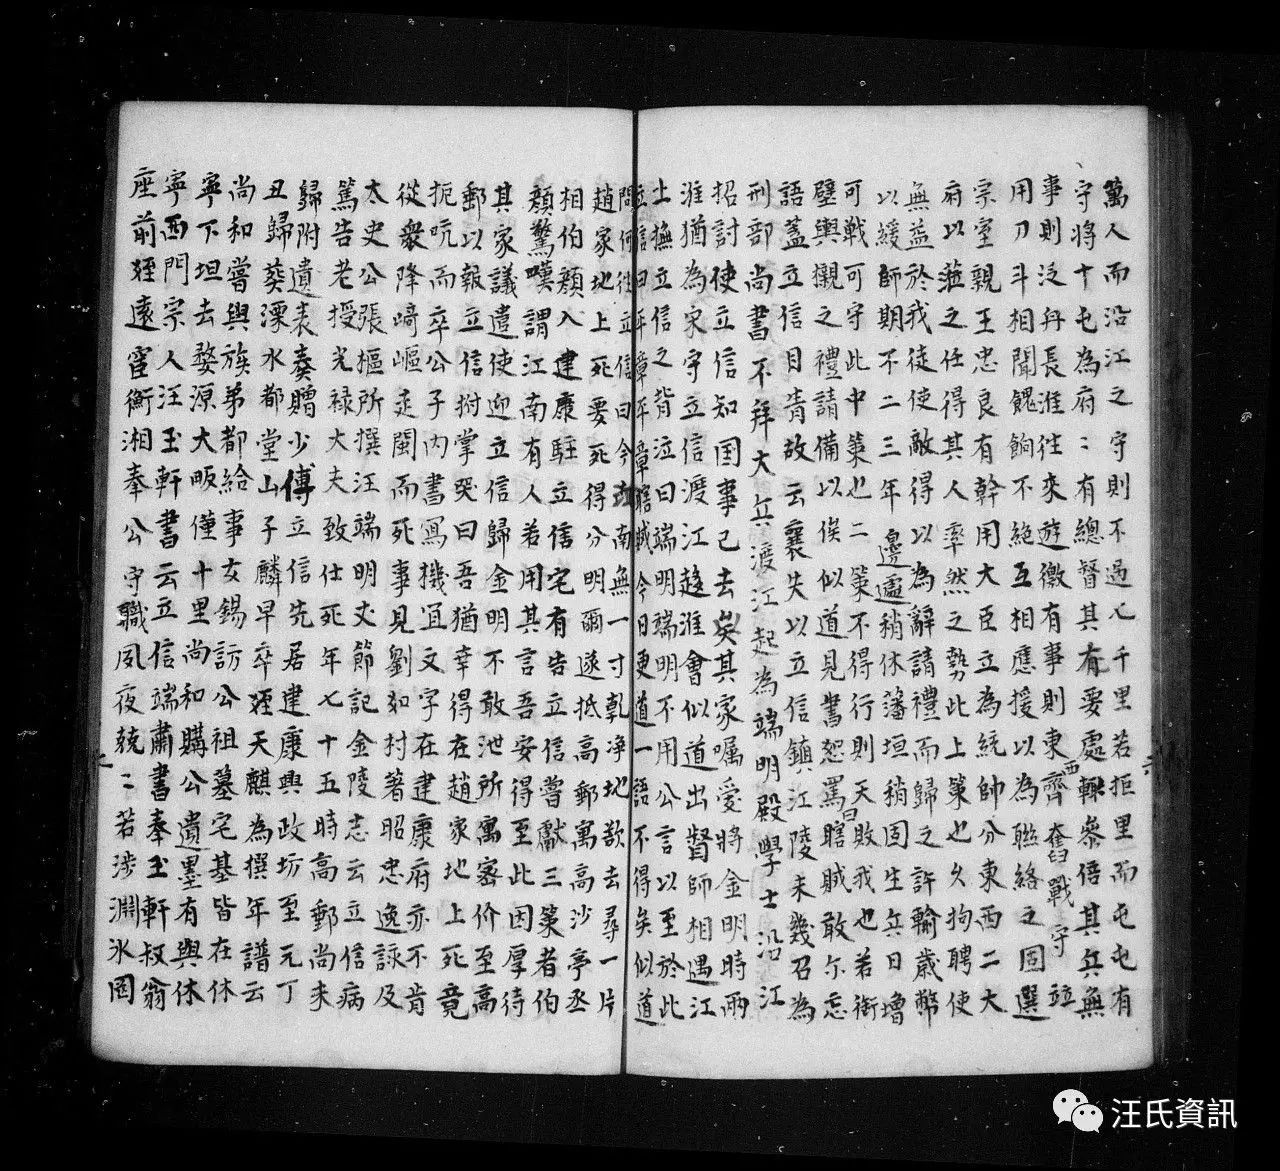 萬人而沿江之守則不過七千里若拒里而屯屯有
守將十屯為府二有總督其有要處輒參倍其兵無
事則泛舟長淮往來遊徼有事則東西齊奮戰守竝
用刀斗相聞餽餉不絕互相應援以為聯絡之固選
宗室親王忠良有幹用大臣立為統帥分東西二大
府以蒞之任得其人率然之勢此上策也久拘聘使
無益於我徒使敵得以為辭請禮而歸之許輸歲幣
以緩師期不二三年邊遽稍休藩垣稍固生兵日增
可戰可守此中策也二策不得行則天敗我也若銜
璧輿櫬之禮請備以俟似道見書怒罵曰瞎賊敢尔忘
語蓋立信目眚故云襄失以立信鎮江陵未幾召為
刑部尚書不拜大兵渡江起為端明殿學士沿江
招討使立信知国事已去矣其家囑愛將金明時兩
淮猶為宋守立信渡江趨淮會似道出督師相遇江
上撫立信之背泣曰端明端明不用公言以至於此
立信曰平章平章瞎賊今日更道一語不得矣似道
問何徃立信曰今江南無一寸乾净地欲去尋一片
趙家地上死要死得分明爾遂抵高郵寓高沙亭丞
相伯顏入建康駐立信宅有告立信嘗獻三策者伯
顏驚嘆謂江南有人若用其言吾安得至此因厚待
其家議遣使迎立信歸金明不敢泄所寓密价至高
郵以報立信拊掌哭曰吾猶幸得在趙家地上死竟
扼吭而卒公子內書寫機宜文字在建康府亦不肯
從衆降崎嶇走閩而死事見劉如村著昭忠逸詠及
太史公張樞所撰汪端明丈節記金陵志云立信病
篤告老授光禄大夫致仕死年七十五時高郵尚未
歸附遺表奏贈少傅立信先居建康興政坊至元丁
丑歸葵溧水都堂山子麟早卒姪天麒為撰年譜云
尚和嘗與族弟都給事女錫訪公祖墓宅基皆在休
寧下坦去婺源大畈僅十里尚和購公遺墨有與休
寧西門宗人汪玉軒書云立信端肅書奉玉軒叔翁
座前姪遠宦衡湘奉公守職夙夜兢二若涉淵冰囹
六
汪氏資訊